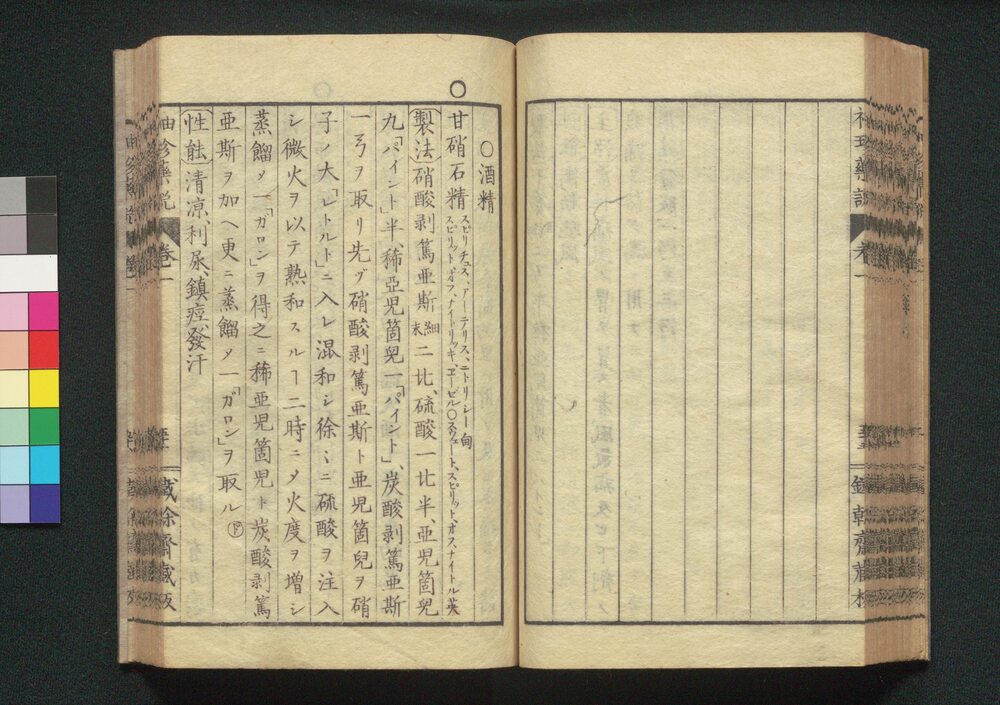 ○酒精
○
甘硝石精 スピリチュス、アーテリス、ニトリシー甸
スピリット、オフ、ナイトリッキ、エーゼル○スウェート、スピリット、オス、ナイトル英
製法 硝酸剥篤亜斯細末二比、硫酸一比半、亜児箇兒
九「パイント」半、稀亞児箇兒一「パイント」、炭酸剥篤亜斯
一弓ヲ取リ先ヅ硝酸剥篤亜斯ト亜児箇兒ヲ硝
子ノ大「レトルト」ニ入レ混和シ徐々ニ硫酸ヲ注入
シ微火ヲ以テ熟和スルヿ二時ニメ火度ヲ増シ
蒸餾メ一「ガロン」ヲ得之ニ稀亜児箇児ト炭酸剥篤
亜斯ヲ加ヘ更ニ蒸餾メ一「ガロン」ヲ取ル
性能 清凉、利尿、鎮痙、發汗
袖珍藥説 卷一